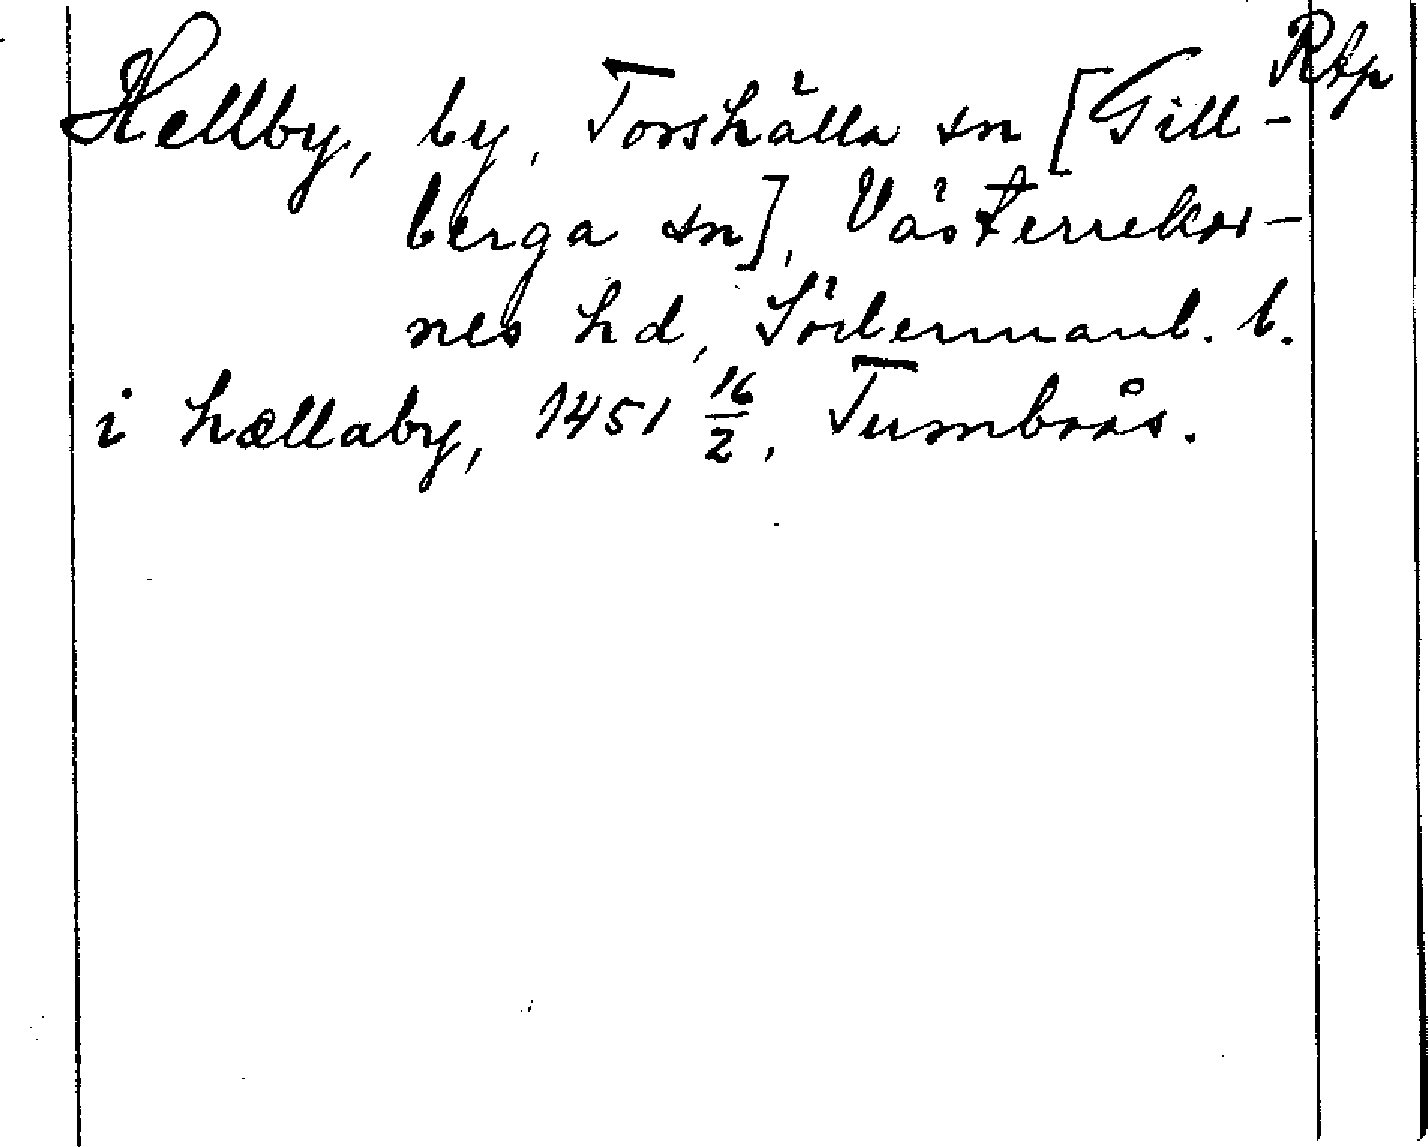 Rtp
Hellby, by, Torshälla sn [Gill-
berga sn], Västerrekar-
nes hd, Södermanl. l.
i hællaby, 1451 16/2, Tumbrås.